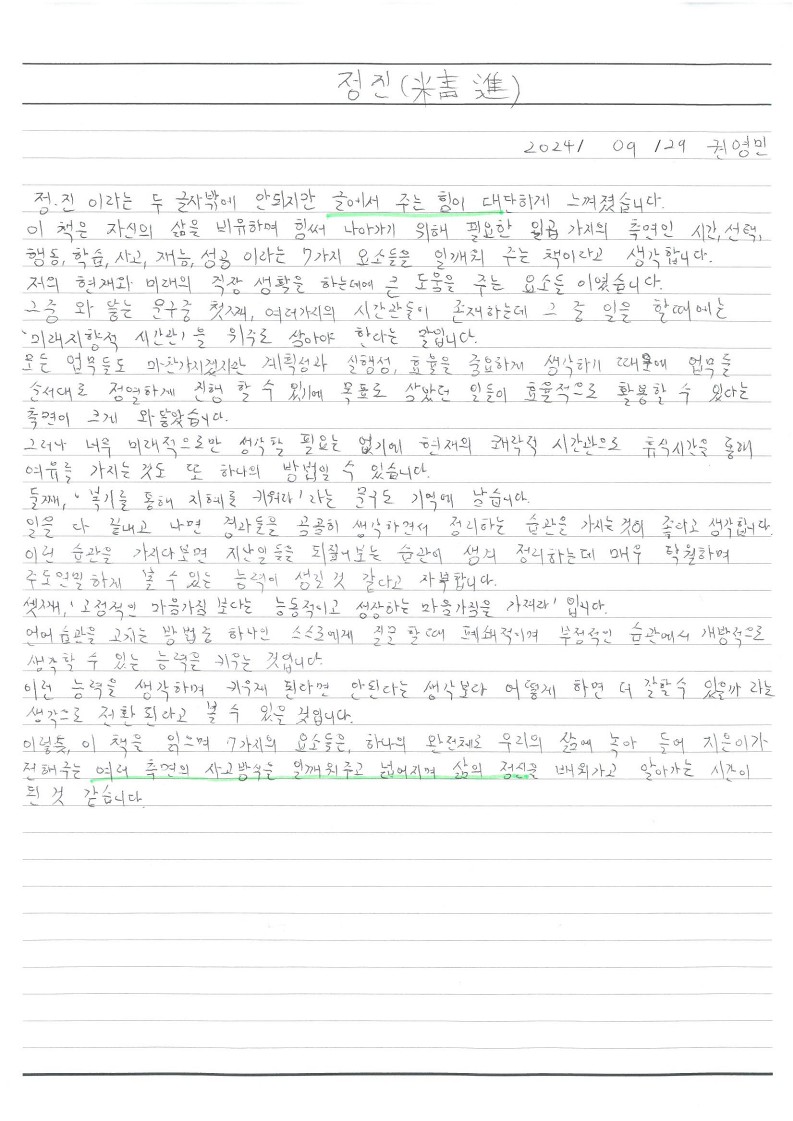 정진(精進)
2024/ 09 /29 권영민
정.진 이라는 두 글자밖에 안되지만 글에서 주는 힘이 대단하게 느껴졌습니다.
이 책은 자신의 삶을 비유하며 힘써 나아가기 위해 필요한 일곱 가지의 측면인 시간,선택,
행동,학습,사고,재능,성공 이라는 7가지 요소들을 일깨치 주는 책이라고 생각합니다.
저의 현재와 미래의 직장 생활을 하는데에 큰 도움을 주는 요소들 이였습니다.
그중 와 닿는 문구중 첫째, 여러가지의 시간관들이 존재하는데 그 중 일을 할때에는
'미래지향적 시간관'을 위주로 살아야 한다는 말입니다.
모든 업무들도 마찬가지겠지만 계획성과 실행성, 효율을 중요하게 생각하기 때문에 업무들
순서대로 정열하게 진행 할 수 있기에 목표로 삼았던 일들이 효율적으로 활용할 수 있다는
측면이 크게 와닿았습니다.
그러나 너무 미래적으로만 생각할 필요는 없기에 현재의 쾌락적 시간관으로 휴식시간을 통해
여유를 가지는 것도 또 하나의 방법일 수 있습니다.
둘째, '복기를 통해 지혜를 키워라'라는 문구도 기억에 남습니다.
일을 다 끝내고 나면 결과들을 곰곰히 생각하면서 정리하는 습관을 가지는 것이 좋다고 생각합니다.
이런 습관을 가지다보면 지난일들을 되짚어보는 습관이 생겨 정리하는데 매우 탁월하며
주도면밀하게 볼 수 있는 능력이 생길 것 같다고 자부합니다.
셋째, '고정적인 마음가짐 보다는 능동적이고 성장하는 마음가짐을 가져라' 입니다.
언어습관을 고치는 방법중 하나인 스스로에게 질문 할때 폐쇄적이며 부정적인 습관에서 개방적으로
생각할 수 있는 능력을 키우는 것입니다.
이런 능력을 생각하며 키우게 된다면 안된다는 생각보다 어떻게 하면 더 잘할수 있을까 라는
생각으로 전환 된다고 볼 수 있을 것입니다.
이렇듯, 이 책을 읽으며 7가지의 요소들은, 하나의 완전체로 우리의 삶에 녹아 들어 지은이가
전해주는 여러 측면의 사고방식을 일깨워주고 넓어지며 삶의 정신을 배워가고 알아가는 시간이
된 것 같습니다.